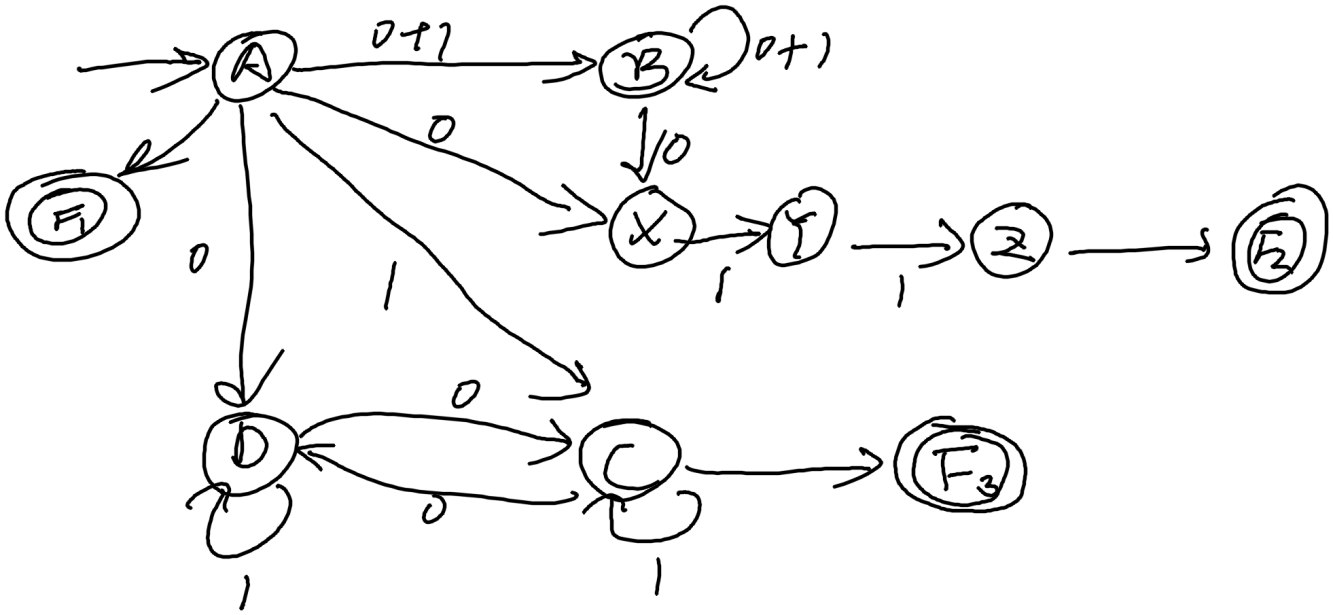 A 0+1 B 0+1
0 0
F1 X Y Z F2
0 1 1 1
0
D C F3
0
1 1